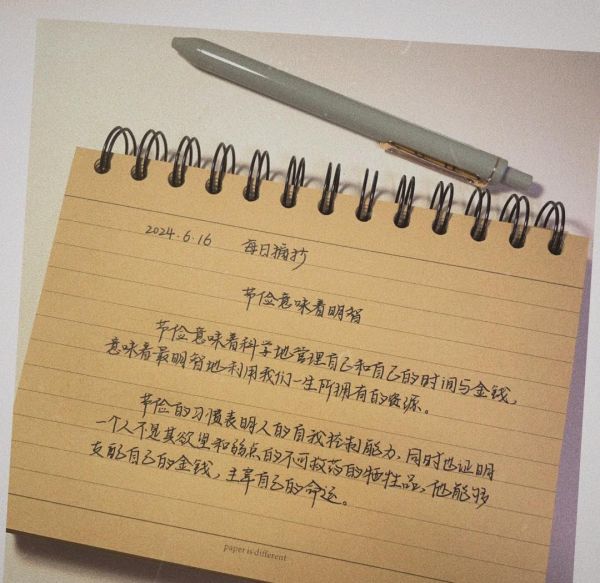 2024.6.16 每日摘抄
节俭意味着明智
节俭意味着科学地管理自己和自己的时间与金钱,
意味着最明智地利用我们一生所拥有的资源。
节俭的习惯表明人的自我控制能力,同时也证明
一个人不是其欲望和弱点的不可救药的牺牲品,他能够
支配自己的金钱,主宰自己的命运。
paper is different